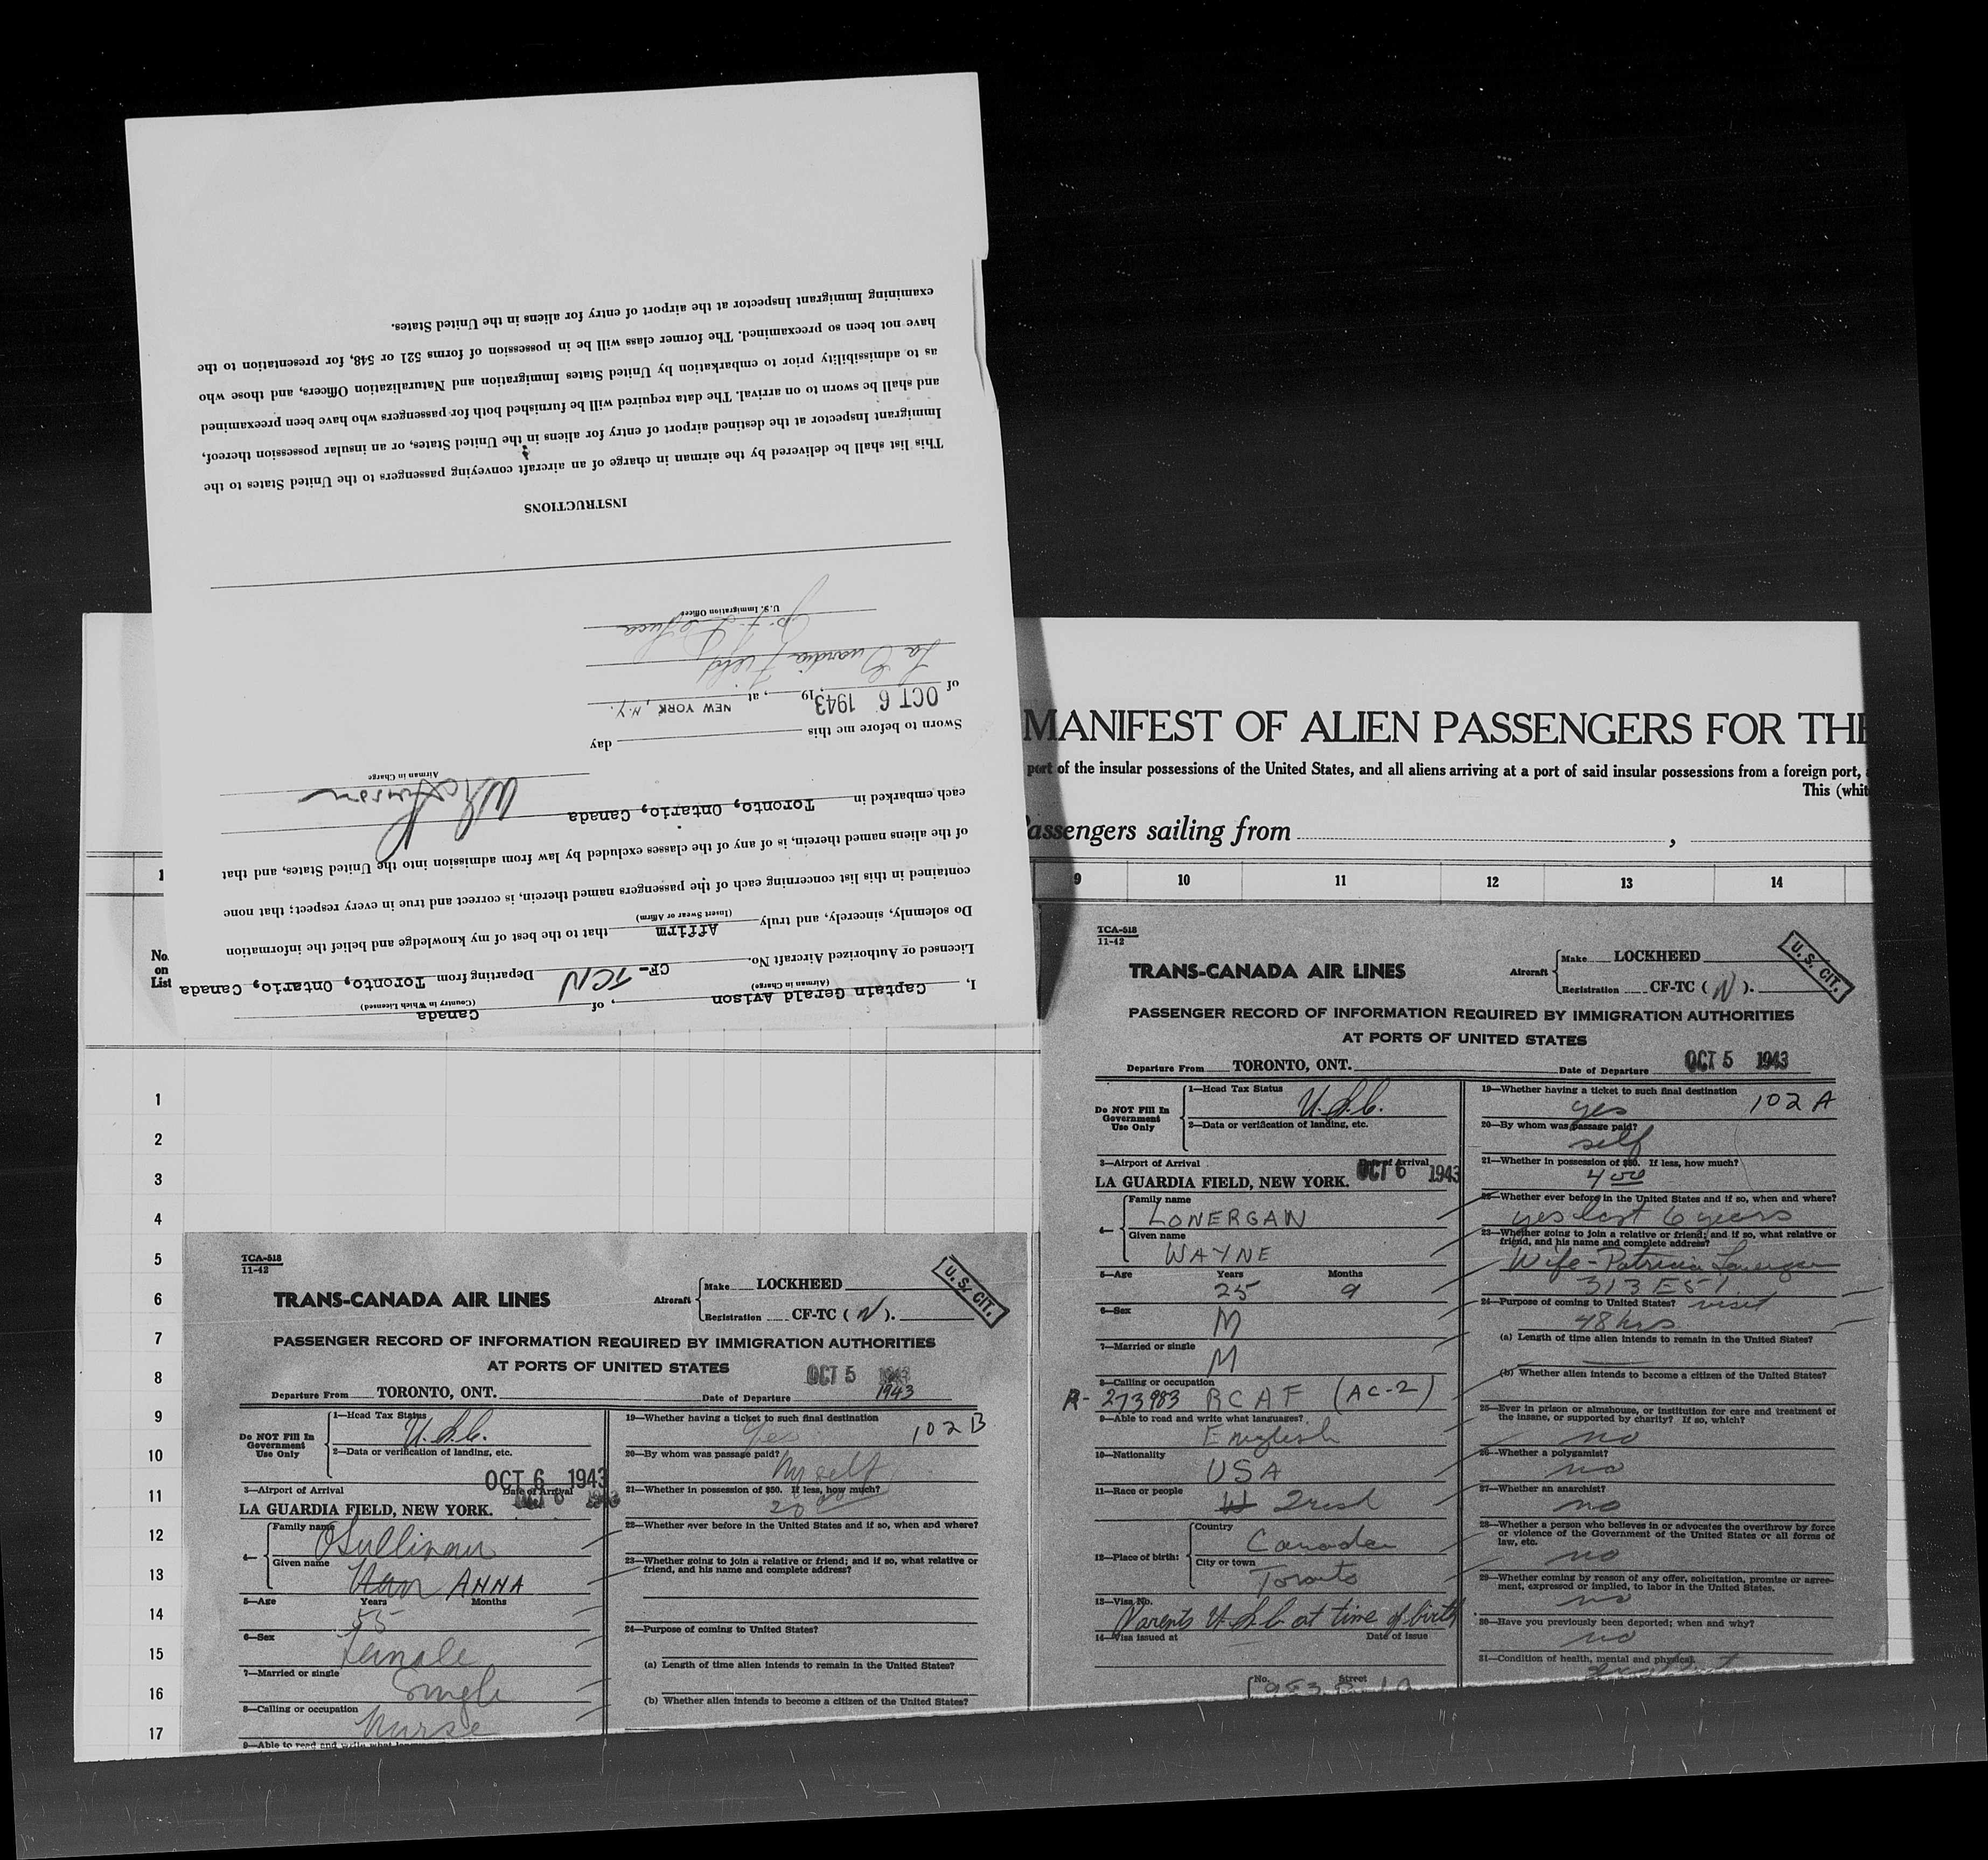 I, Captain Gerald Avison, of Canada
(Airman in Charge) (Country in Which Licensed)
Licensed or Authorized Aircraft No. CF-TCN Departing from Toronto, Ontario, Canada
Do solemnly, sincerely, and truly Affirm that to the best of my knowledge and belief the information
(Insert Swear or Affirm)
contained in this list concerning each of the passengers named therein, is correct and true in every respect; that none
of the aliens named therein, is of any of the classes excluded by law from admission into the United States, and that
each embarked in Toronto, Ontario, Canada
Airman in Charge
Sworn to before me this day
of OCT 6 1943, 19, at NEW YORK, N.Y.
La Guardia Field
U.S. Immigration Officer
INSTRUCTIONS
This list shall be delivered by the airman in charge of an aircraft conveying passengers to the United States to the
Immigrant Inspector at the destined airport of entry for aliens in the United States, or an insular possession thereof,
and shall be sworn to on arrival. The data required will be furnished both for passengers who have been preexamined
as to admissibility prior to embarkation by United States Immigration and Naturalization Officers, and those who
have not been so preexamined. The former class will be in possession of forms 521 or 548, for presentation to the
examining Immigrant Inspector at the airport of entry for aliens in the United States.
MANIFEST OF ALIEN PASSENGERS FOR THE
port of the insular possessions of the United States, and all aliens arriving at a port of said insular possessions from a foreign port,
This (whit
Passengers sailing from ,
1 9 10 11 12 13 14
No.
on
List
1
2
3
4
5
6
7
8
9
10
11
12
13
14
15
16
17
TCA-518
11-42
TRANS-CANADA AIR LINES
Aircraft Make LOCKHEED
Registration CF-TC (N).
U.S. CIT.
PASSENGER RECORD OF INFORMATION REQUIRED BY IMMIGRATION AUTHORITIES
AT PORTS OF UNITED STATES
Departure From TORONTO, ONT. Date of Departure OCT 5 1943
1943
Do NOT Fill In
Government
Use Only
1—Head Tax Status
U.S.C.
2—Data or verification of landing, etc.
3—Airport of Arrival Date of Arrival
OCT 6 1943
LA GUARDIA FIELD, NEW YORK.
4— Family name
OSullivan
Given name
ANNA
5—Age Years Months
55
6—Sex
Female
7—Married or single
Single
8—Calling or occupation
Nurse
9—Able to read and write what languages?
19—Whether having a ticket to such final destination
Yes 102 B
20—By whom was passage paid?
Myself
21—Whether in possession of $50. If less, how much?
20 00
22—Whether ever before in the United States and if so, when and where?
23—Whether going to join a relative or friend; and if so, what relative or
friend, and his name and complete address?
24—Purpose of coming to United States?
(a) Length of time alien intends to remain in the United States?
(b) Whether alien intends to become a citizen of the United States?
TCA-518
11-42
TRANS-CANADA AIR LINES
Aircraft Make LOCKHEED
Registration CF-TC (N).
U.S. CIT.
PASSENGER RECORD OF INFORMATION REQUIRED BY IMMIGRATION AUTHORITIES
AT PORTS OF UNITED STATES
Departure From TORONTO, ONT. Date of Departure OCT 5 1943
Do NOT Fill In
Government
Use Only
1—Head Tax Status
U.S.C.
2—Data or verification of landing, etc.
3—Airport of Arrival Date of Arrival
LA GUARDIA FIELD, NEW YORK. OCT 6 1943
4— Family name
LONERGAN
Given name
WAYNE
5—Age Years Months
25 9
6—Sex
M
7—Married or single
M
8—Calling or occupation
R-273983 RCAF (AC-2)
9—Able to read and write what languages?
English
10—Nationality
USA
11—Race or people
Irish
12—Place of birth: Country
Canada
City or town
Toronto
13—Visa No.
Parents U.S.C. at time of birth
14—Visa issued at Date of issue
No. Street
19—Whether having a ticket to such final destination
yes 102 A
20—By whom was passage paid?
self
21—Whether in possession of $50. If less, how much?
4 00
22—Whether ever before in the United States and if so, when and where?
yes last 6 years
23—Whether going to join a relative or friend; and if so, what relative or
friend, and his name and complete address?
Wife - Patricia Lonergan
313 E 51
24—Purpose of coming to United States? visit
48 hrs
(a) Length of time alien intends to remain in the United States?
(b) Whether alien intends to become a citizen of the United States?
25—Ever in prison or almshouse, or institution for care and treatment of
the insane, or supported by charity? If so, which?
no
26—Whether a polygamist?
no
27—Whether an anarchist?
no
28—Whether a person who believes in or advocates the overthrow by force
or violence of the Government of the United States or all forms of
law, etc.
no
29—Whether coming by reason of any offer, solicitation, promise or agree-
ment, expressed or implied, to labor in the United States.
no
30—Have you previously been deported; when and why?
no
31—Condition of health, mental and physical.